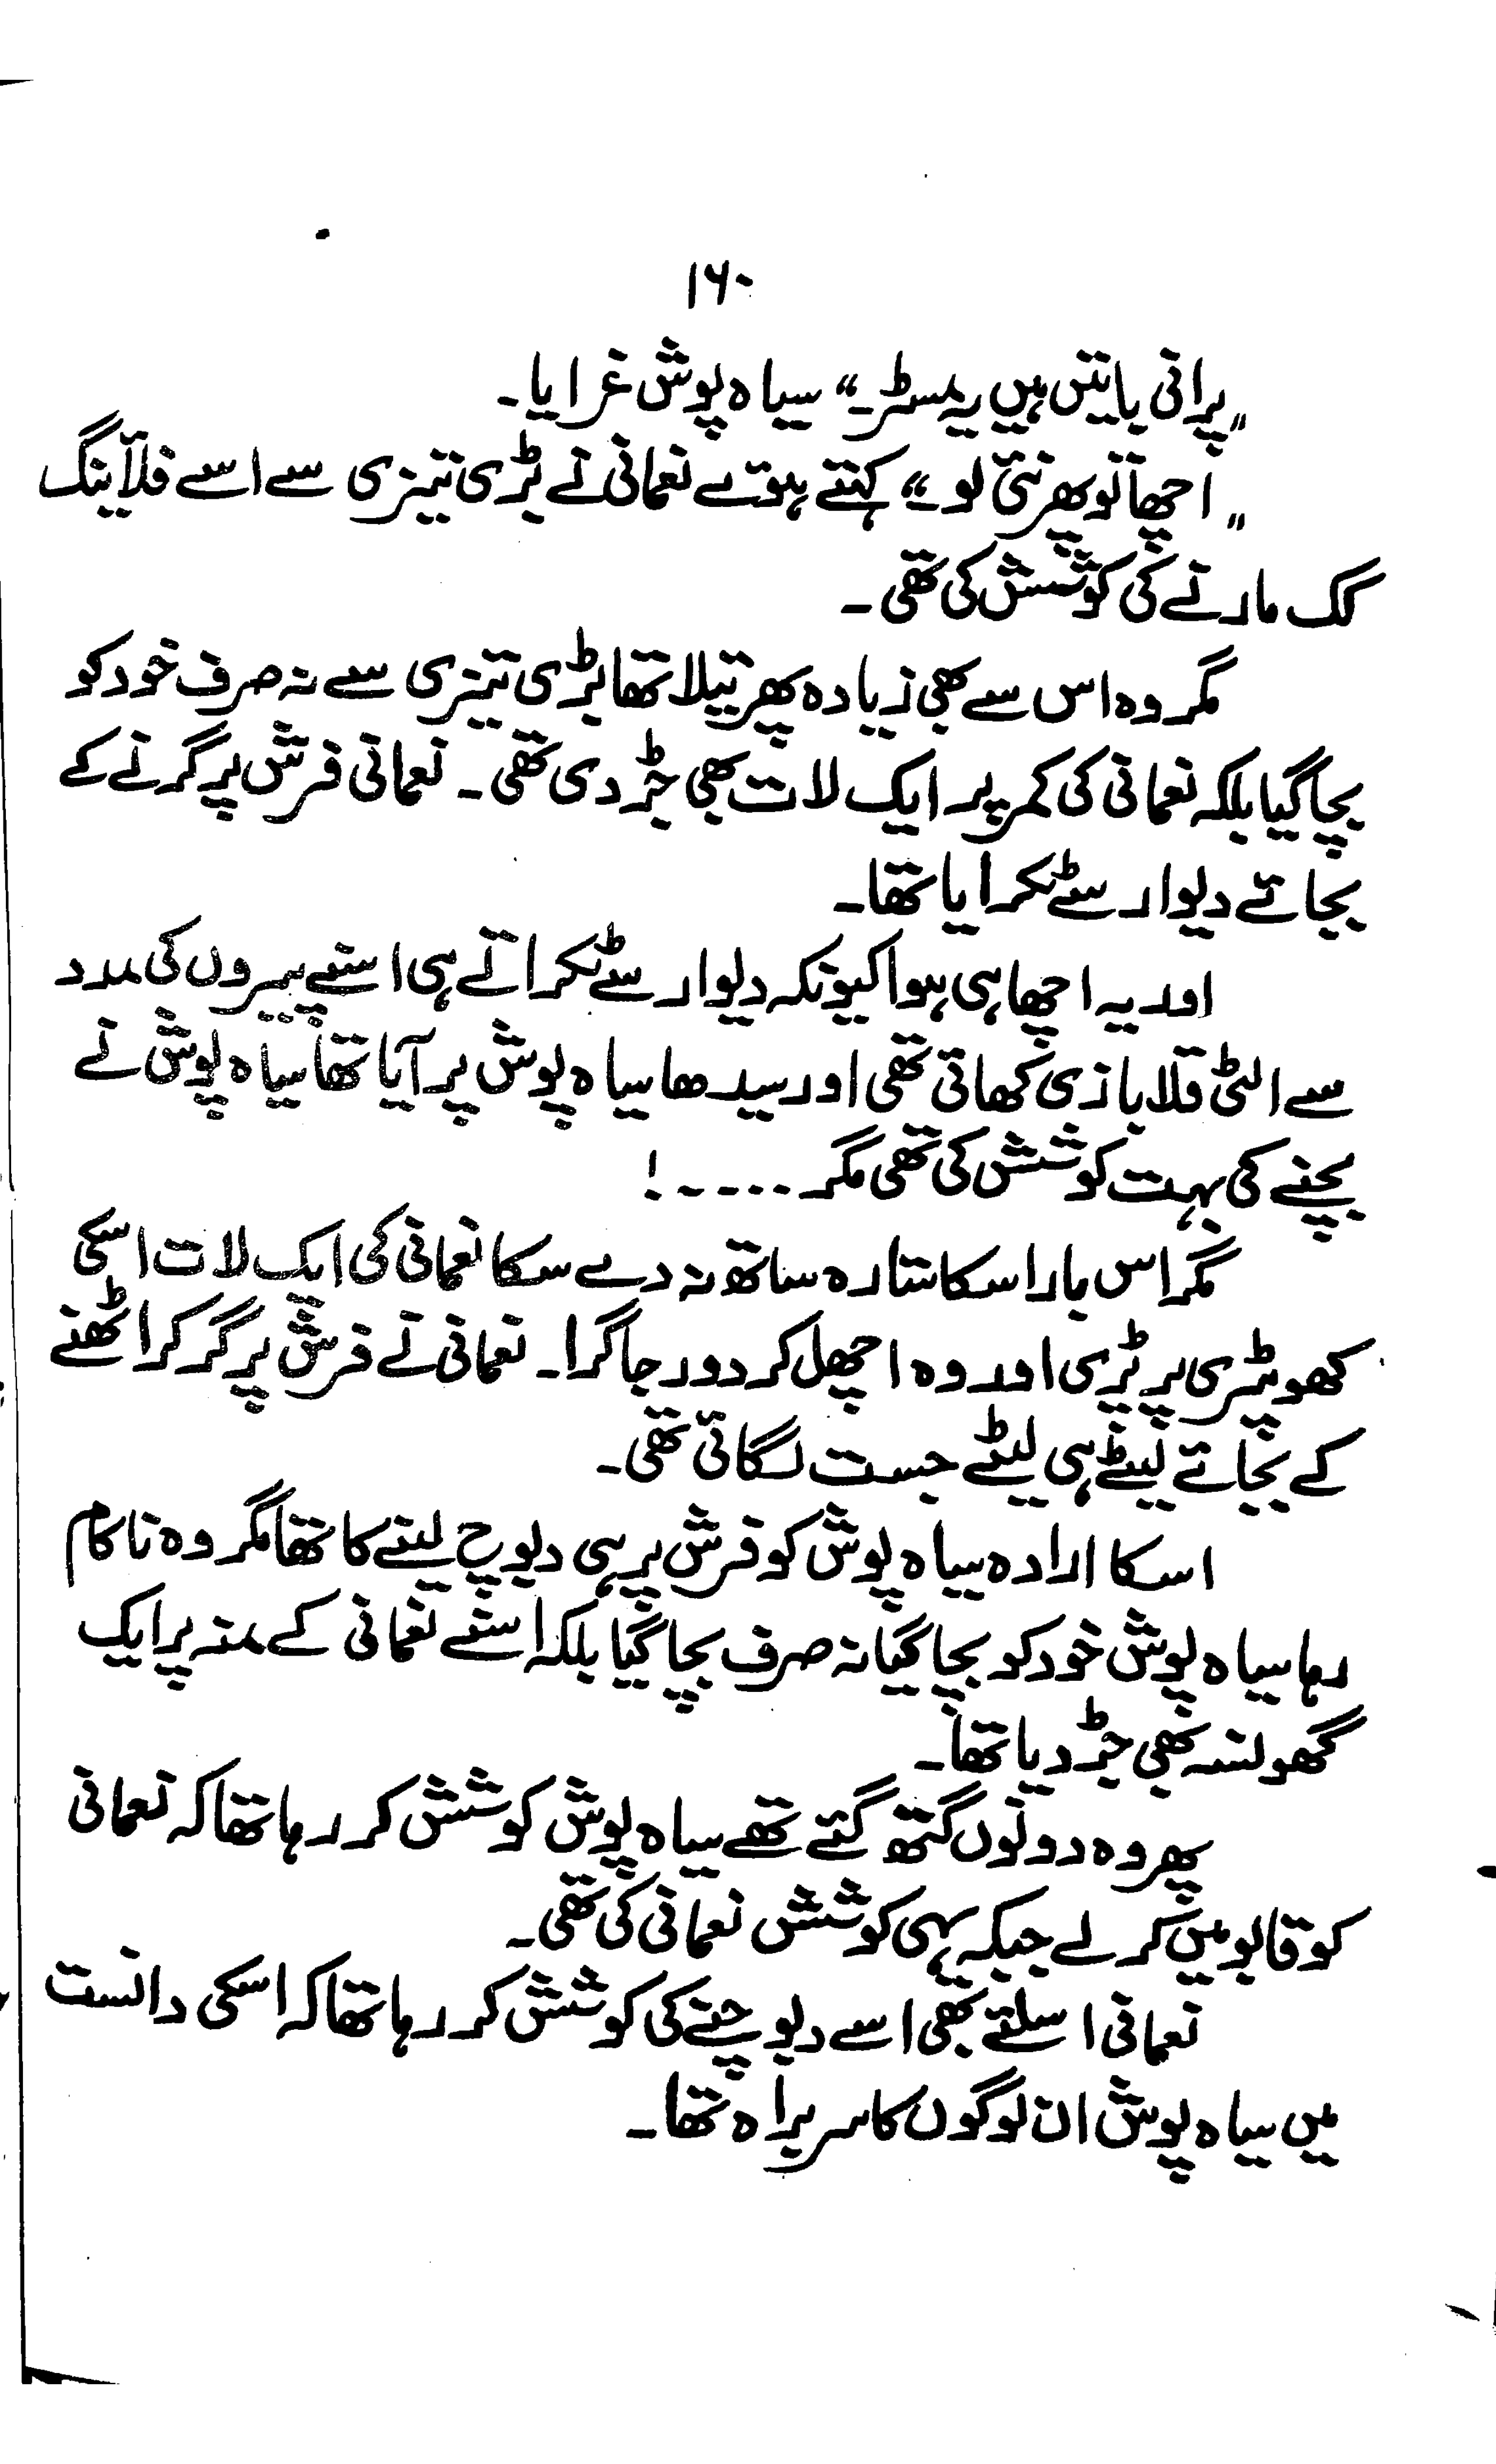 ۱۶۰
"پرانی باتیں ہیں یہ مسٹر۔" سیاہ پوش غرایا۔
"اچھا تو پھر نئی لو" کہتے ہوئے نعمانی نے بڑی تیزی سے اسے فلائینگ
کک مارنے کی کوشش کی تھی۔
مگر وہ اس سے بھی زیادہ پھرتیلا تھا بڑی تیزی سے نہ صرف خود کو
بچا گیا بلکہ نعمانی کی کمر پر ایک لات بھی جڑ دی تھی۔ نعمانی فرش پر گرنے کے
بجائے دیوار سے ٹکرایا تھا۔
اور یہ اچھا ہی ہوا کیونکہ دیوار سے ٹکراتے ہی اسنے پیروں کی مدد
سے الٹی قلابازی کھائی تھی اور سیدھا سیاہ پوش پر آیا تھا سیاہ پوش نے
بچنے کی بہت کوشش کی تھی مگر ۔۔۔۔۔!
مگر اس بار اسکا ستارہ ساتھ نہ دے سکا نعمانی کی ایک لات اسکی
کھوپڑی پر پڑی اور وہ اچھل کر دور جا گرا۔ نعمانی نے فرش پر گر کر اٹھنے
کے بجائے لیٹے ہی لیٹے جست لگائی تھی۔
اسکا ارادہ سیاہ پوش کو فرش پر ہی دبوچ لینے کا تھا مگر وہ ناکام
رہا سیاہ پوش خود کو بچا گیا نہ صرف بچا گیا بلکہ اسنے نعمانی کے منہ پر ایک
گھونسہ بھی جڑ دیا تھا۔
پھر وہ دونوں گتھ گئے تھے سیاہ پوش کوشش کر رہا تھا کہ نعمانی
کو قابو میں کر لے جبکہ یہی کوشش نعمانی کی تھی۔
نعمانی اسلئے بھی اسے دبوچنے کی کوشش کر رہا تھا کہ اسکی دانست
میں سیاہ پوش ان لوگوں کا سربراہ تھا۔